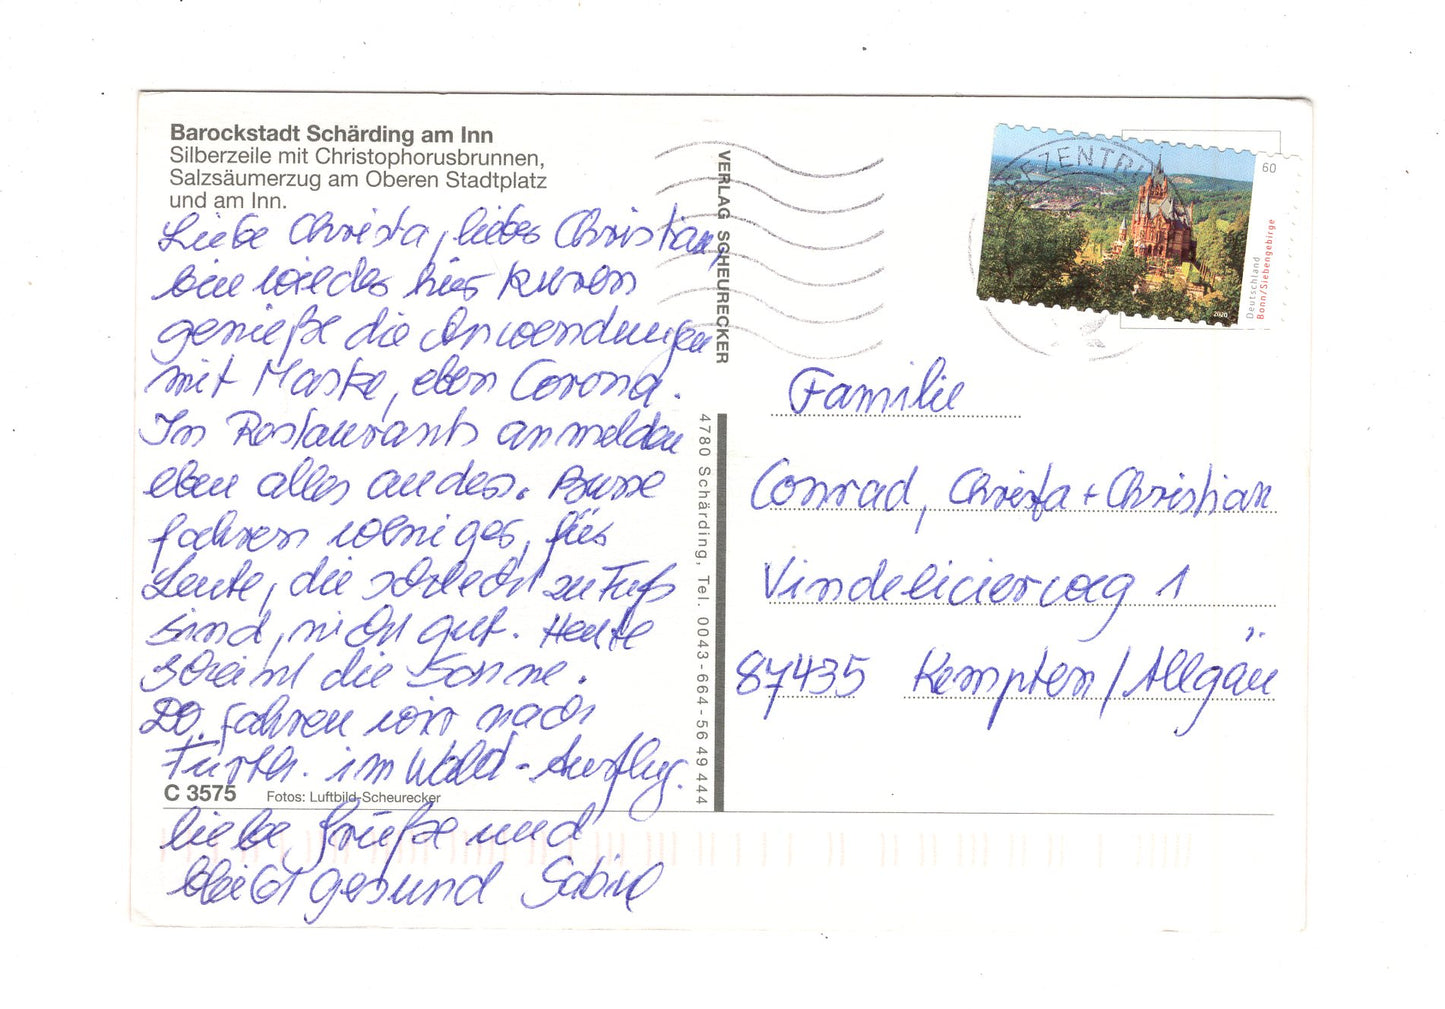 Barockstadt Schärding am Inn
Silberzeile mit Christophorusbrunnen,
Salzsäumerzug am Oberen Stadtplatz
und am Inn.
Liebe Christa, liebes Christian,
bin wieder hier kuren
genieße die Anwendungen
mit Maske, eben Corona.
In Restaurants anmelden
eben alles anders. Busse
fahren weniger, für
Leute, die schlecht zu Fuß
sind, nicht gut. Heute
scheint die Sonne.
Do. fahren wir nach
Fürth. im Wald-Ausflug.
C 3575 Fotos: Luftbild-Scheurecker
liebe Grüße und
bleibt gesund Sabine
VERLAG SCHEURECKER
4780 Schärding, Tel. 0043-664-56 49 444
ZENTR
60
Deutschland
Bonn/Siebengebirge
2020
Familie
Conrad, Christa + Christian
Vindelicierweg 1
87435 Kempten/Allgäu